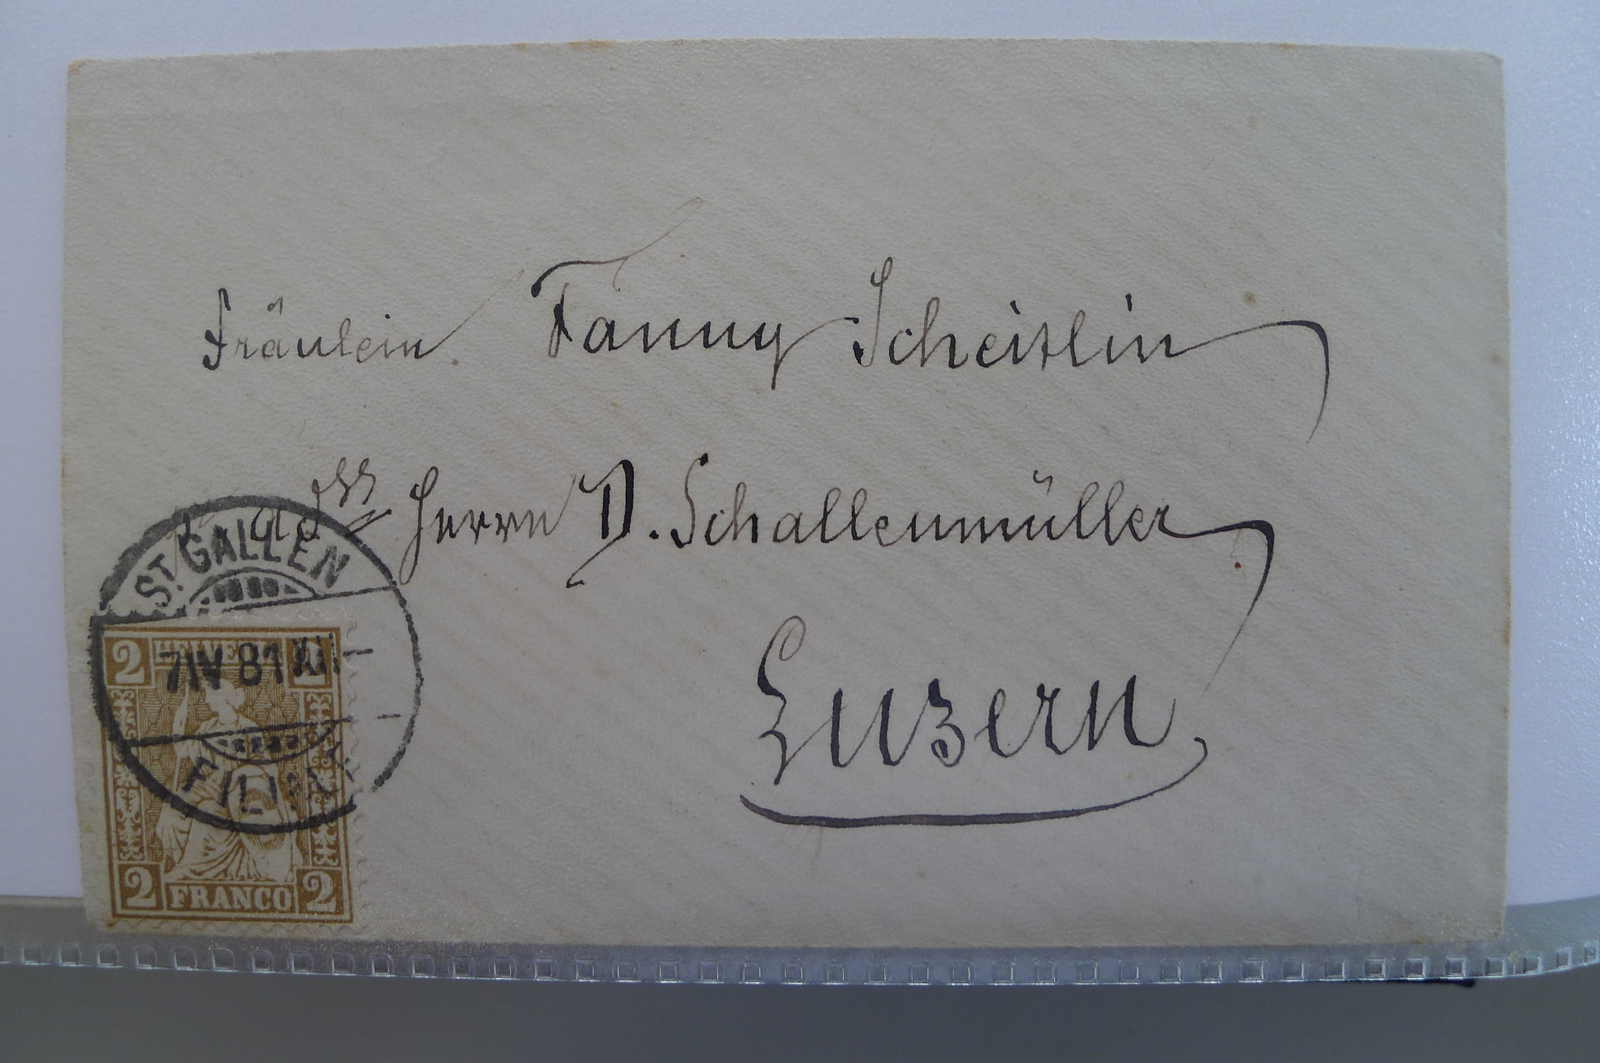 Fräulein Fanny Scheitlin
adss Herrn D. Schallenmüller
Luzern
ST. GALLEN
7 IV 81 XII
2 HELVETIA 2
2 FRANCO 2